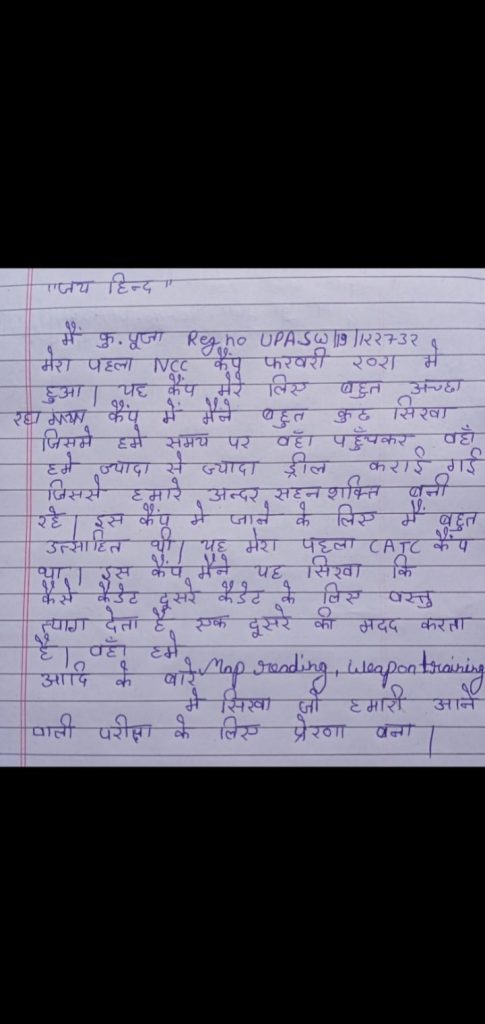 "जय हिन्द"
मैं कु. पूजा Reg no UPASW/19/122732
मेरा पहला NCC कैंप फरवरी २०२१ मे
हुआ। यह कैंप मेरे लिए बहुत अच्छा
रहा कैंप में मैंने बहुत कुछ सिखा
जिसमे हमे समय पर वहाँ पहुँचकर वहाँ
हमे ज्यादा से ज्यादा ड्रील कराई गई
जिससे हमारे अन्दर सहनशक्ति बनी
रहे। इस कैंप मे जाने के लिए मैं बहुत
उत्साहित थी। यह मेरा पहला CATC कैंप
था। इस कैंप मैंने यह सिखा कि
कैसे कैडेट दूसरे कैडेट के लिए वस्तु
त्याग देता है एक दूसरे की मदद करता
है। वहाँ हमे
आदि के बारे Map reading, Weapon training
मे सिखा जो हमारी आने
वाली परीक्षा के लिए प्रेरणा बना।